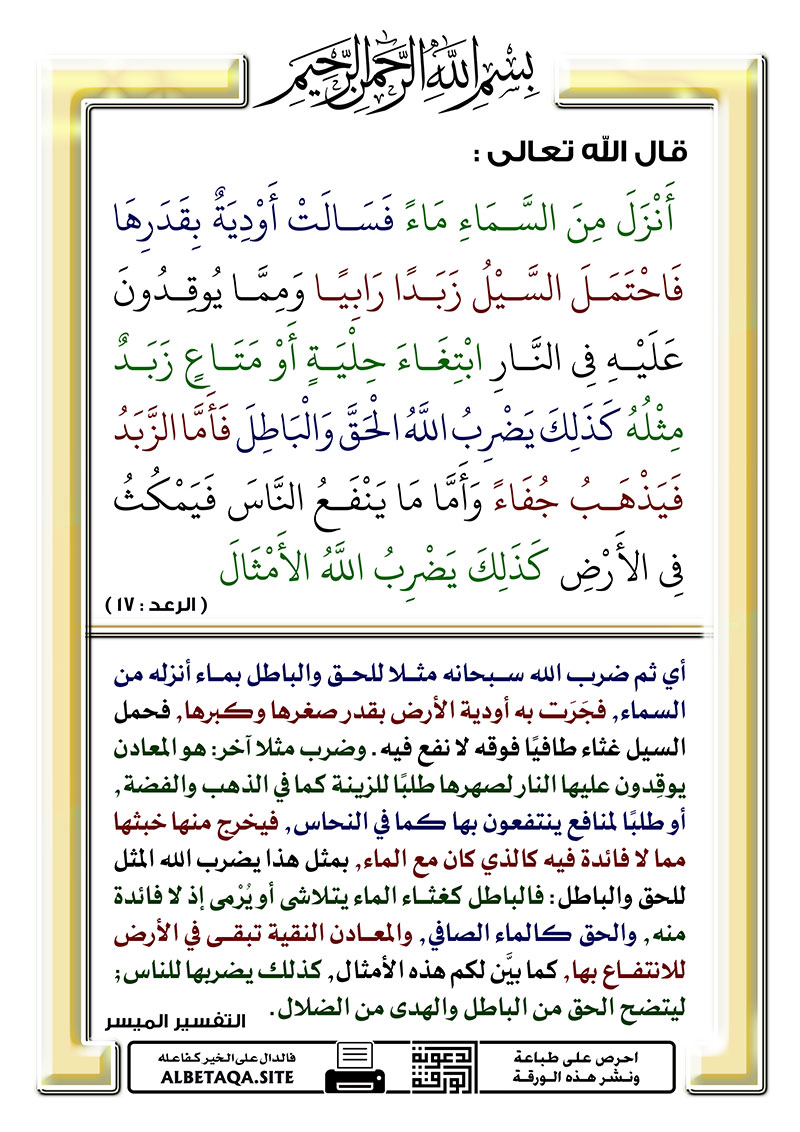 بِسْمِ اللَّهِ الرَّحْمَنِ الرَّحِيمِ
قال الله تعالى :
أَنْزَلَ مِنَ السَّمَاءِ مَاءً فَسَالَتْ أَوْدِيَةٌ بِقَدَرِهَا
فَاحْتَمَلَ السَّيْلُ زَبَدًا رَابِيًا وَمِمَّا يُوقِدُونَ
عَلَيْهِ فِي النَّارِ ابْتِغَاءَ حِلْيَةٍ أَوْ مَتَاعٍ زَبَدٌ
مِثْلُهُ كَذَلِكَ يَضْرِبُ اللَّهُ الْحَقَّ وَالْبَاطِلَ فَأَمَّا الزَّبَدُ
فَيَذْهَبُ جُفَاءً وَأَمَّا مَا يَنْفَعُ النَّاسَ فَيَمْكُثُ
فِي الأَرْضِ كَذَلِكَ يَضْرِبُ اللَّهُ الأَمْثَالَ
( الرعد : ١٧ )
أي ثم ضرب الله سبحانه مثلا للحق والباطل بماء أنزله من
السماء, فجَرَت به أودية الأرض بقدر صغرها وكبرها, فحمل
السيل غثاء طافيًا فوقه لا نفع فيه. وضرب مثلا آخر: هو المعادن
يوقِدون عليها النار لصهرها طلبًا للزينة كما في الذهب والفضة,
أو طلبًا لمنافع ينتفعون بها كما في النحاس, فيخرج منها خبثها
مما لا فائدة فيه كالذي كان مع الماء, بمثل هذا يضرب الله المثل
للحق والباطل: فالباطل كغثاء الماء يتلاشى أو يُرْمى إذ لا فائدة
منه, والحق كالماء الصافي, والمعادن النقية تبقى في الأرض
للانتفاع بها, كما بيَّن لكم هذه الأمثال, كذلك يضربها للناس;
ليتضح الحق من الباطل والهدى من الضلال.
التفسير الميسر
احرص على طباعة
ونشر هذه الورقة
الورقة
الدعوية
فالدال على الخير كفاعله
ALBETAQA.SITE